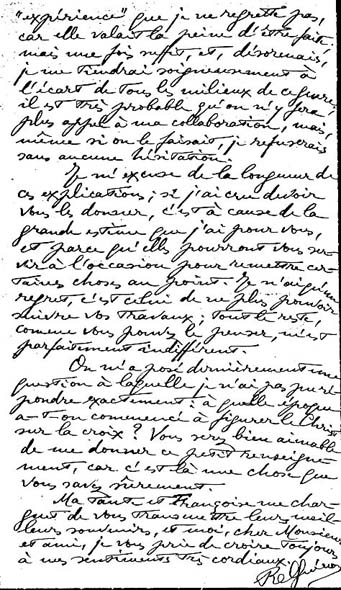 "expérience" que je ne regrette pas,
car elle valait la peine d'être faite,
mais une fois suffit, et, désormais,
je me tiendrai soigneusement à
l'écart de tous les milieux de ce genre;
il est très probable qu'on n'y fera
plus appel à ma collaboration, mais,
même si on le faisait, je refuserais
sans aucune hésitation.
Je m'excuse de la longueur de
ces explications; si j'ai cru devoir
vous les donner, c'est à cause de la
grande estime que j'ai pour vous,
et parce qu'elles pourront vous ser-
vir à l'occasion pour remettre cer-
taines choses au point. Je n'ai qu'un
regret, c'est celui de ne plus pouvoir
suivre vos travaux; tout le reste,
comme vous pouvez le penser, m'est
parfaitement indifférent.
On m'a posé dernièrement une
question à laquelle je n'ai pas pu ré-
pondre exactement: à quelle époque
a-t-on commencé à figurer le Christ
sur la croix? Vous serez bien aimable
de me donner ce petit renseigne-
ment, car c'est là une chose que
vous savez sûrement.
Ma tante et Françoise me char-
gent de vous transmettre leurs meil-
leurs souvenirs, et moi, cher Monsieur
et ami, je vous prie de croire toujours
à mes sentiments très cordiaux.
René Guénon